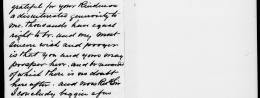 grateful for your Kindness
a disinterested generosity to
me. thousands have equal
right to br. and my most
sincere wish and prayer
is that you and yours may
prosper her. and
of which there is no doubt
here after. and now
I conclude begging a few